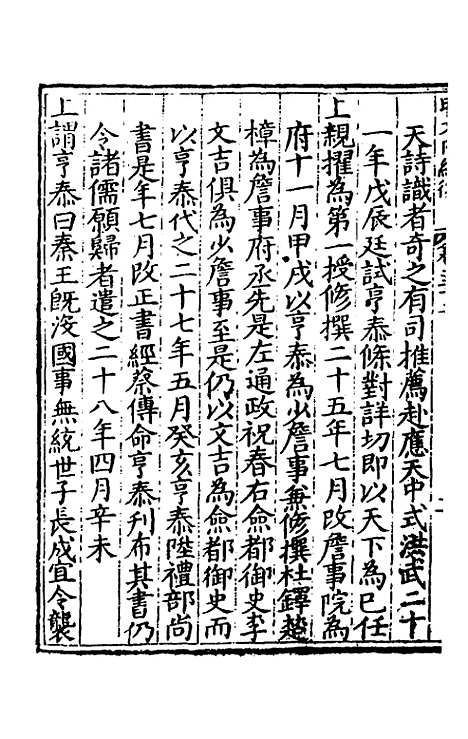 天詩識者奇之有司推薦赴應天中式洪武二十
一年戊辰廷試亨泰條對詳切即以天下為已任
上親擢為第一授修撰二十五年七月改詹事院為
府十一月甲戌以亨泰為少詹事兼修撰杜鐸楚
樟為詹事府丞先是左通政祝春右僉都御史李
文吉俱為少詹事至是仍以文吉為僉都御史而
以亨泰代之二十七年五月癸亥亨泰陞禮部尚
書是年七月改正書經蔡傳命亨泰刋布其書仍
令諸儒願歸者遣之二十八年四月辛未
上謂亨泰曰秦王旣没國事無統世子長成宜令襲